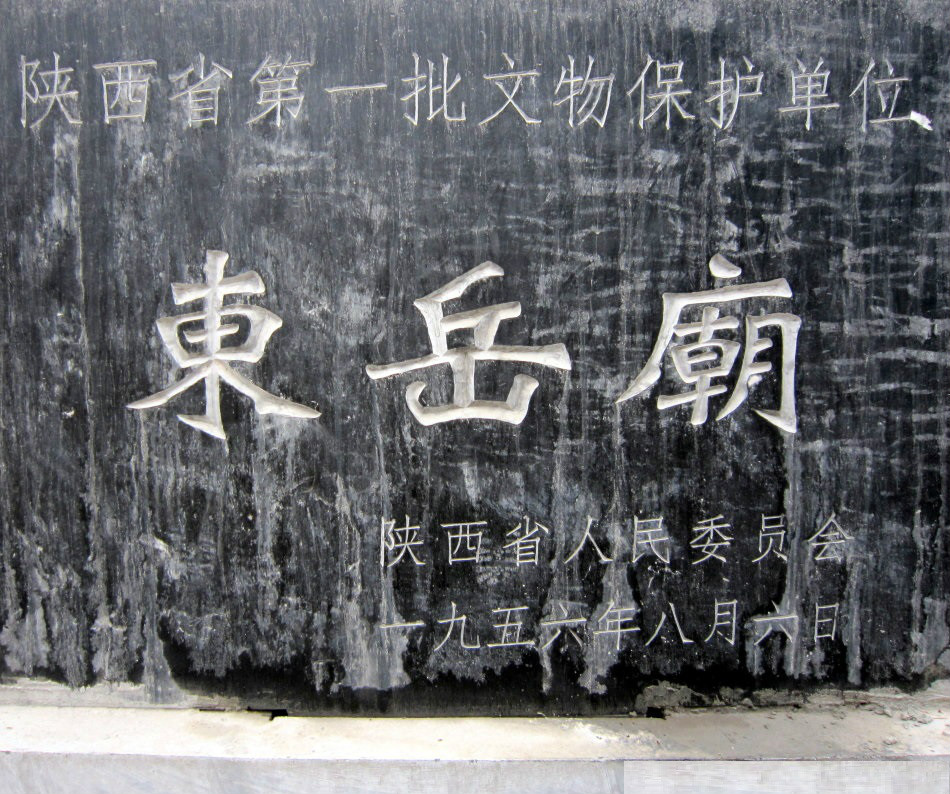 陕西省第一批文物保护单位
東岳廟
陕西省人民委员会
一九五六年八月六日